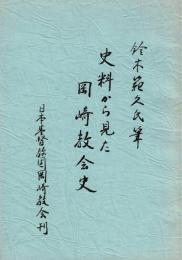 鈴木範久氏筆
史料から見た
岡崎教会史
日本基督教団岡崎教会刊